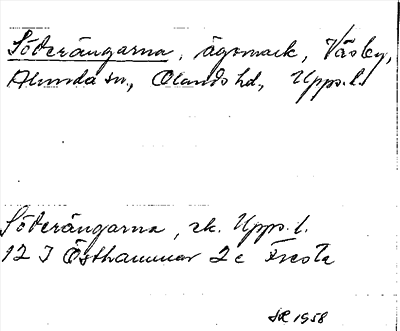 Söderängarna, ägomark, Väsby,
Almunda sn, Olands hd, Upps. l.
Söderängarna, rk. Upps. l.
12 I Östhammar 2 c Fresta
1958